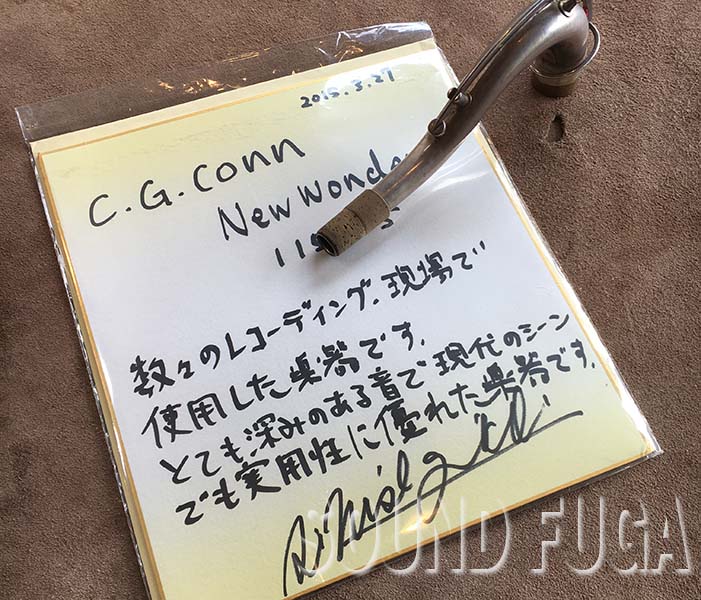 2015.3.27
C.G.Conn
New Wonde
数々のレコーディング、現場で
使用した楽器です.
とても深みのある音で現代のシーン
でも実用性に優れた楽器です.
SOUND FUGA